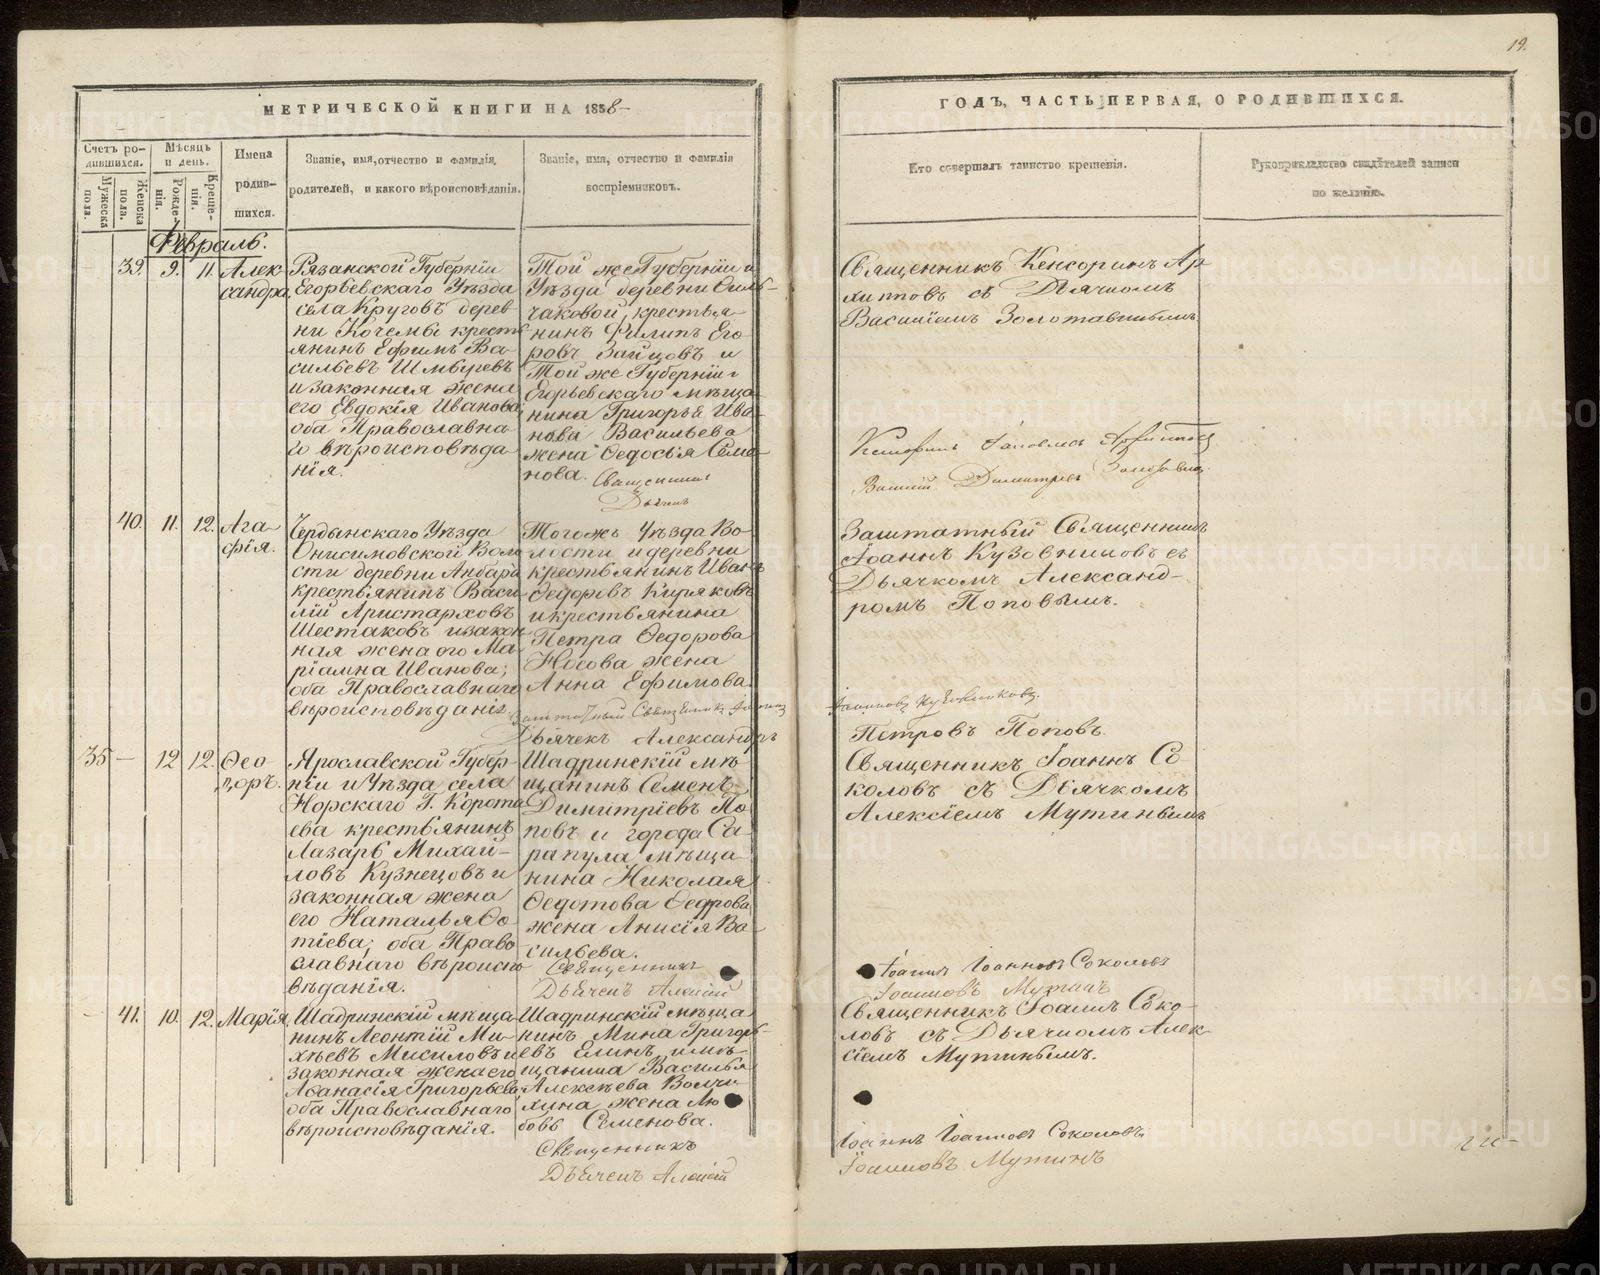 19.
МЕТРИЧЕСКОЙ КНИГИ НА 1858
ГОДЪ, ЧАСТЬ ПЕРВАЯ, О РОДИВШИХСЯ.
Счетъ родившихся.
Мужеска пола.
Женска пола.
Мѣсяцъ и день.
Рожденія.
Крещенія.
Имена родившихся.
Званіе, имя, отчество и фамилія родителей, и какого вѣроисповѣданія.
Званіе, имя, отчество и фамилія воспріемниковъ.
Кто совершалъ таинство крещенія.
Рукоприкладство свидѣтелей записи по желанію.
Февраль.
39. 9. 11. Алек
сандра,
Рязанской Губерніи
Егорьевскаго Уѣзда
села Круговъ дерев
ни Кочемы кресть
янинъ Ефимъ Ва-
сильевъ
и законная жена
его Евдокія Иванова,
оба Православна
го вѣроисповѣда
нія.
Той же Губерніи и
Уѣзда деревни
чаковой, крестья-
нинъ Филипъ Его
ровъ Зайцовъ и
Той же Губерніи
Егорьевскаго мѣща
нина Григорья Ива
нова Васильева
жена Ѳедосья Семе
нова. Священникъ
Дьячекъ
Священникъ Кенсоринъ Ар
хиповъ съ Дьячкомъ
Василіемъ Золотавинымъ
Василій Димитріевъ
40. 11. 12. Ага-
фія.
Чердынскаго Уѣзда
Онисимовской Воло
сти деревни Анбара
крестьянинъ Васи
лій Аристарховъ
Шестаковъ и закон
ная жена его Ма
ріамна Иванова;
оба Православнаго
вѣроисповѣданія.
Тогожъ Уѣзда Во-
лости и деревни
крестьянинъ Иванъ
Ѳедоровъ Киряковъ
и крестьянина
Петра Ѳедорова
Носова жена
Анна Ефимова.
Заштатный Священникъ Іоаннъ
Дьячекъ Александръ
Заштатный Священникъ
Іоаннъ Кузовниковъ съ
Дьячкомъ Александ-
ромъ Поповымъ.
Іоанновъ Кузовниковъ.
Петровъ Поповъ.
35 — 12 12. Ѳео
доръ.
Ярославской Губер-
ніи и Уѣзда села
Норскаго Г. Корота
ева крестьянинъ
Лазарь Михай-
ловъ Кузнецовъ и
законная жена
его Наталья Ѳо
тіева; оба Право-
славнаго вѣроиспо
вѣданія.
Шадринскій мѣ
щанинъ Семенъ
Димитріевъ По
повъ и города Са
рапула мѣща
нина Николая
Ѳедотова Ѳедрова
жена Анисія Ва
сильева.
Священникъ
Дьячекъ Алексій
Священникъ Іоаннъ Со
коловъ съ Дьячкомъ
Алексіемъ Мутинымъ
Іоаннъ Іоанновъ Соколовъ
Іоанновъ Мутинъ
41. 10. 12. Марія,
Шадринскій мѣща
нинъ Леонтій Ми-
хѣевъ Мисиловъ и
законная жена его
Аѳанасія Григорьева,
оба Православнаго
вѣроисповѣданія.
Шадринскій мѣща
нинъ Мина Григорь-
евъ Елинъ и мѣ-
щанина Василья
Алексѣева Волчи-
хина жена Лю
бовь Семенова.
Священникъ
Дьячекъ Алексій
Священникъ Іоаннъ Соко-
ловъ съ Дьячкомъ Алек-
сіемъ Мутинымъ.
Іоаннъ Іоанновъ Соколовъ
Іоанновъ Мутинъ
METRIKI.GASO-URAL.RU